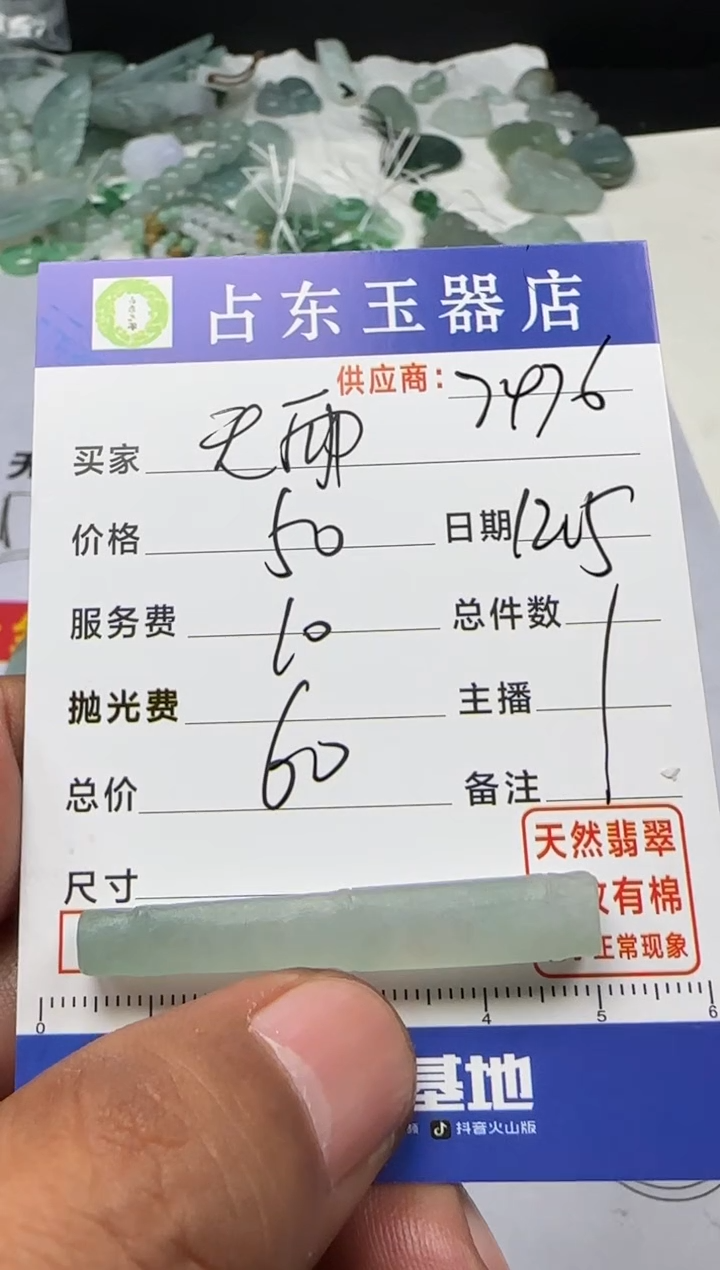 占东玉器店
供应商：7476
买家
价格 50 日期 1205
服务费 10 总件数 1
抛光费 主播
总价 60 备注
尺寸
天然翡翠
有棉
正常现象
0 4 5 6
基地
抖音火山版